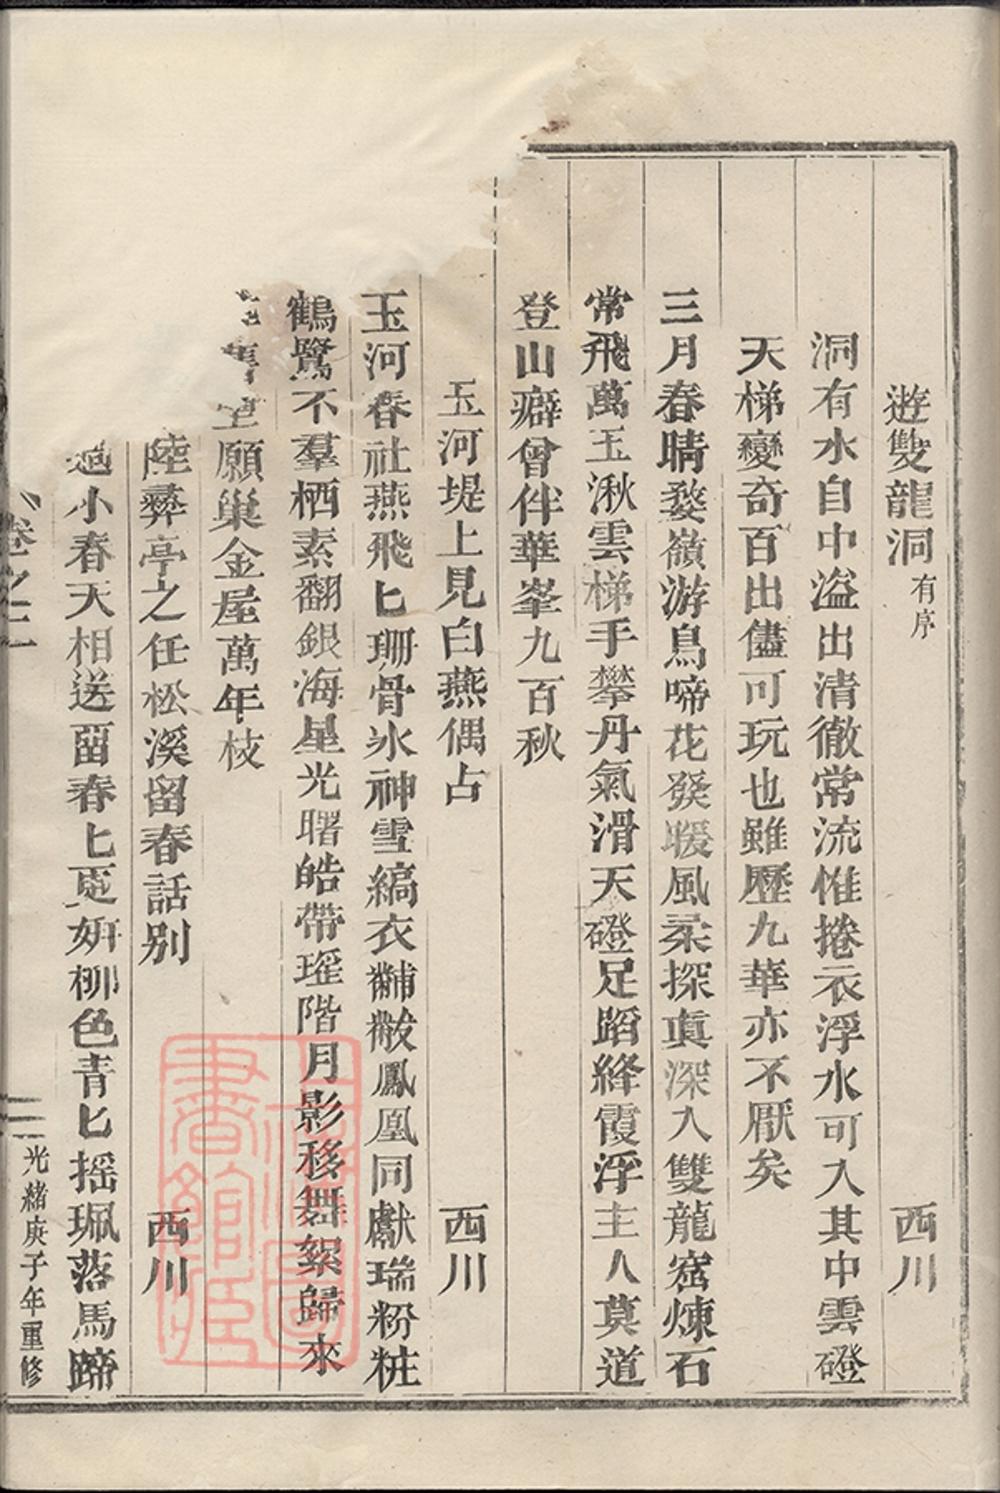 遊雙龍洞 有序 西川
洞有水自中溢出清徹常流惟捲衣浮水可入其中雲磴
天梯變奇百出儘可玩也雖歷九華亦不厭矣
三月春晴婺嶺游鳥啼花發暖風柔探真深入雙龍窟煉石
常飛萬玉湫雲梯手攀丹氣滑天磴足蹈絳霞浮主人莫道
登山癖曾伴華峯九百秋
玉河堤上見白燕偶占 西川
玉河春社燕飛匕珊骨氷神雪縞衣黼黻鳳凰同獻瑞粉粧
鶴鷺不羣栖素翻銀海星光曙皓帶瑤階月影移舞絮歸來
願巢金屋萬年枝
陸彝亭之任松溪留春話別 西川
過小春天相送畱春匕更妍栁色青匕搖珮落馬蹄
卷之二
二
光緒庚子年重修